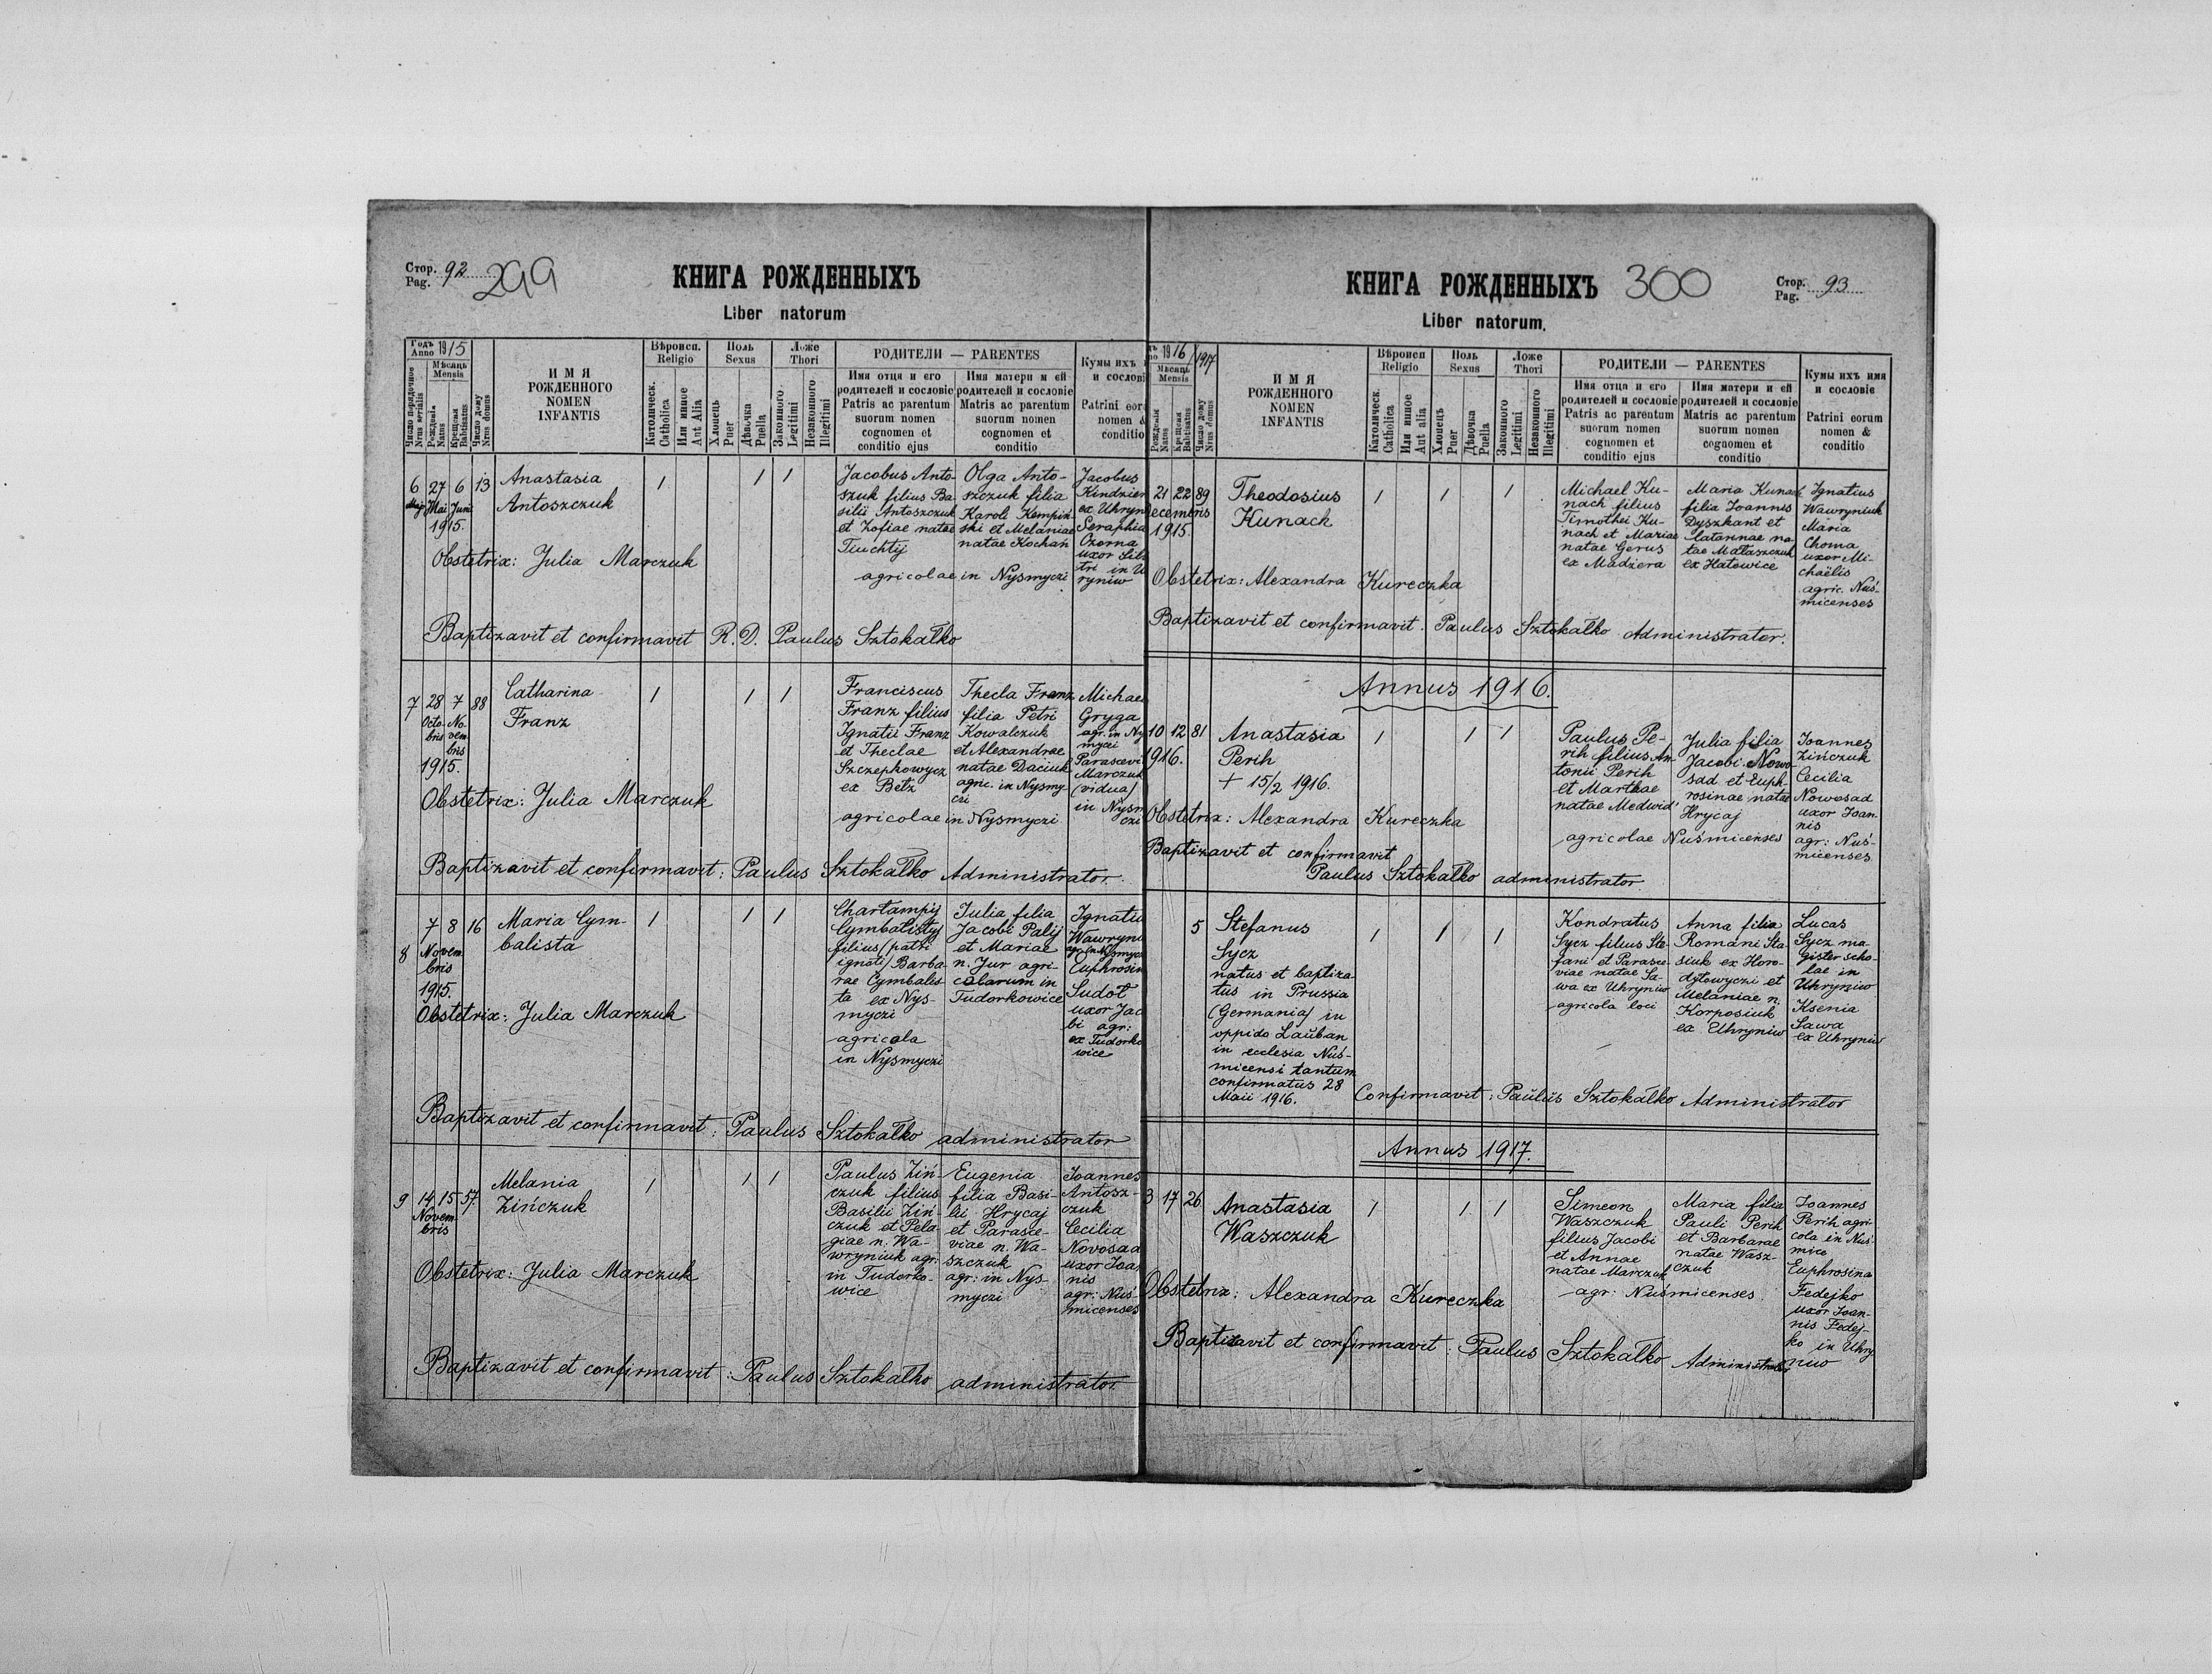 Стор. 92
Pag.
299
КНИГА РОЖДЕННЫХЪ
Liber natorum
Годъ
Anno 1915
Мѣсяць
Mensis
Число порядочное
Nrus serialis
Рожденія
Natus
Крещенія
Babtisatus
Число дому
Nrus domus
ИМЯ
РОЖДЕННОГО
NOMEN
INFANTIS
Вѣроисп.
Religio
Католическ.
Catholica
Или иншое
Aut Alia
Поль
Sexus
Хлопець
Puer
Дѣвочка
Puella
Ложе
Thori
Законного
Legitimi
Незаконного
Illegitimi
РОДИТЕЛИ — PARENTES
Имя отця и его
родителей и сословіе
Patris ac parentum
suorum nomen
cognomen et
conditio ejus
Имя матери и ей
родителей и сословіе
Matris ac parentum
suorum nomen
cognomen et
conditio
Кумы ихъ
и сословіе
Patrini eoru
nomen &
conditio
6 27 6 13
Maj Mai Juni
1915.
Anastasia
Antoszczuk
1 1 1
Jacobus Anto-
szuk filius Ba-
silii Antoszczuk
et Zofiae natae
Tiuchtij
Olga Anto-
szczuk filia
Karoli Kempiń-
ski et Melaniae
natae Kochan
agricolae in Nysmyczi
Jacobus
Kindzier
ex Uhryn
Seraphia
Ozorna
uxor
tri in U
ryniw
Obstetrix: Julia Marczuk
Baptizavit et confirmavit R. D. Paulus Sztokałko
7 28 7 88
Octo- No-
bris vem-
bris
1915.
Catharina
Franz
1 1 1
Franciscus
Franz filius
Ignatii Franz
et Theclae
Szczepkowycz
ex Betz
Thecla Franz
filia Petri
Kowalczuk
et Alexandrae
natae Daciuk
agric. in Nysmy-
czi
agricolae in Nysmyczi
Michael
Gryga
agr. in Ny
myczi
Parascevi
Marczuk
(vidua)
in Nysm
czi
Obstetrix: Julia Marczuk
Baptizavit et confirmavit: Paulus Sztokałko Administrator.
8 7 8 16
Novem-
bris
1915.
Maria Cym-
balista
1 1 1
Charłampij
Cymbalistyj
filius (patri
ignoti) Barba-
rae Cymbalis-
ta ex Nys-
myczi
agricola
in Nysmyczi
Julia filia
Jacobi Palij
et Mariae
n. Jur agri-
colarum in
Tudorkowice
Ignatiu
Wawryniu
agr. in Nysmycz
Euphrosin
Sudoł
uxor Jac
bi agr:
ex Tudorko
wice
Obstetrix: Julia Marczuk
Baptizavit et confirmavit: Paulus Sztokałko administrator
9 14 15 57.
Novem-
bris
Melania
Zińczuk
1 1 1
Paulus Ziń-
czuk filius
Basilii Ziń-
czuk et Pela-
giae n. Wa-
wryniuk agr:
in Tudorko-
wice
Eugenia
filia Basi-
lii Hrycaj
et Parasce-
viae n. Wa-
szczuk
agr: in Nys-
myczi
Joannes
Antosz-
czuk
Cecilia
Novosad
uxor Joa
nis
agr: Nuś-
micenses
Obstetrix: Julia Marczuk
Baptizavit et confirmavit: Paulus Sztokałko administrator.
КНИГА РОЖДЕННЫХЪ 300
Liber natorum.
Стор. 93
Pag.
1916 / 1917
Мѣсяць
Mensis
Рожденія
Natus
Крещенія
Babtisatus
Число дому
Nrus domus
ИМЯ
РОЖДЕННОГО
NOMEN
INFANTIS
Вѣроисп
Religio
Католическ.
Catholica
Или иншое
Aut alia
Поль
Sexus
Хлопець
Puer
Дѣвочка
Puella
Ложе
Thori
Законного
Legitimi
Незаконного
Illegitimi
РОДИТЕЛИ — PARENTES
Имя отця и его
родителей и сословіе
Patris ac parentum
suorum nomen
cognomen et
conditio ejus
Имя матери и ей
родителей и сословіе
Matris ac parentum
suorum nomen
cognomen et
conditio
Кумы ихъ имя
и сословіе
Patrini eorum
nomen &
conditio
21 22 89
ecembris
1915.
Theodosius
Kunach
1 1 1
Michael Ku-
nach filius
Timothei Ku-
nach et Mariae
natae Gerus
ex Madziera
Maria Kunach
filia Joannis
Dyszkant et
Catarinae na-
tae Małaszczuk
ex Katowice
Ignatius
Wawryniuk
Maria
Choma
uxor Mi-
chaëlis
agric. Nuś-
micenses
Obstetrix: Alexandra Kureczka
Baptizavit et confirmavit. Paulus Sztokałko Administrator.
Annus 1916.
10 12 81
916.
Anastasia
Perih
+ 15/2 1916.
1 1 1
Paulus Pe-
rih filius An-
tonii Perih
et Marthae
natae Medwid'
Julia filia
Jacobi Nowo-
sad et Euph-
rosinae natae
Hrycaj
agricolae Nuśmicenses
Joannes
Zińczuk
Cecilia
Nowosad
uxor Joan-
nis
agr: Nuś-
micenses.
Obstetrix: Alexandra Kureczka
Baptizavit et confirmavit
Paulus Sztokałko administrator
5
Stefanus
Sycz
natus et baptiza-
tus in Prussia
(Germania) in
oppido Laŭban
in ecclesia Nuś-
micensi tantum
confirmatus 28
Maii 1916.
1 1 1
Kondratus
Sycz filius Ste-
fani et Parasce-
viae natae Sa-
wa ex Uhryniw
agricola loci
Anna filia
Romani Sta-
siuk ex Horo-
dyłowyczi et
Melaniae n.
Korposiuk
ex Uhryniw
Lucas
Sycz ma-
gister scho-
lae in
Uhryniw
Ksenia
Sawa
ex Uhryniw
Confirmavit: Paŭlŭs Sztokałko Administrator
Annus 1917.
3 17 26
Anastasia
Waszczuk
1 1 1
Simeon
Waszczuk
filius Jacobi
et Annae
natae Marczuk
Maria filia
Pauli Perih
et Barbarae
natae Wasz-
czuk
agr: Nuśmicenses
Joannes
Perih agri-
cola in Nuś-
mice
Euphrosina
Fedejko
uxor Joan-
nis Fedej-
ko in Uhry
niw
Obstetrix: Alexandra Kureczka
Baptizavit et confirmavit: Paulus Sztokałko Administrator